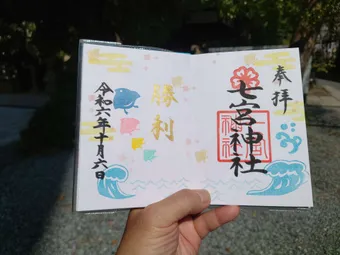 奉拝
七宮神社
勝利
令和六年十月六日